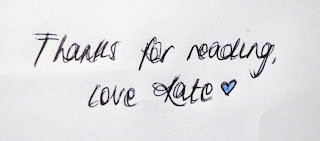 Thanks for reading,
love Kate